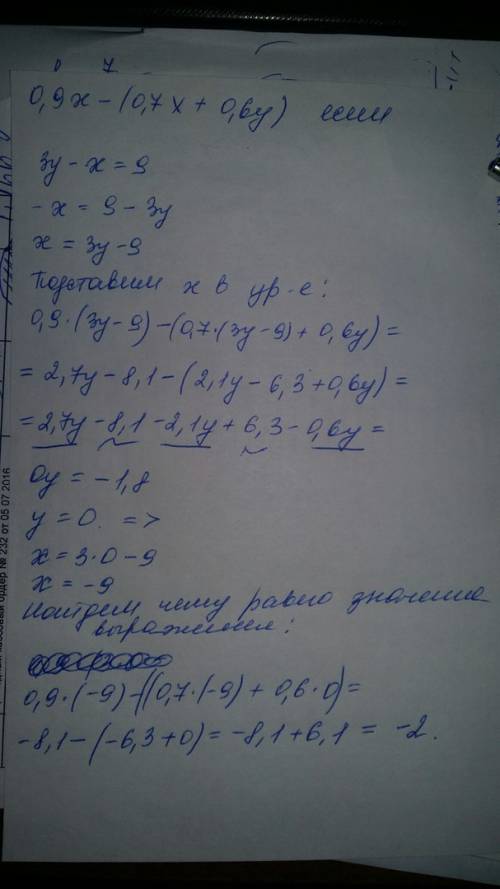 0,9x - (0,7x + 0,6y) если
3y - x = 9
- x = 9 - 3y
x = 3y - 9
Подставим x в ур-е:
0,9·(3y-9) - (0,7·(3y-9) + 0,6y) =
= 2,7y - 8,1 - (2,1y - 6,3 + 0,6y) =
= 2,7y - 8,1 - 2,1y + 6,3 - 0,6y =
0y = -1,8
y = 0. =>
x = 3·0 - 9
x = -9
Найдем чему равно значение
выражения:
0,9·(-9) - ((0,7·(-9) + 0,6·0) =
-8,1 - (-6,3 + 0) = -8,1 + 6,1 = -2.
ный кассовый ордер № 232 от 05 07 2016